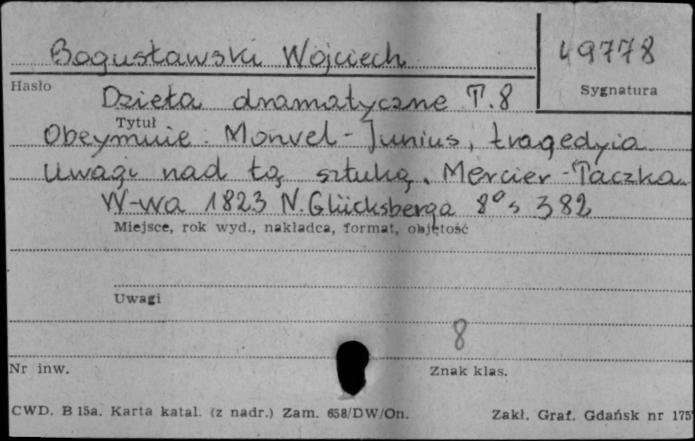 Bogusławski Wojciech
49778
Hasło
Sygnatura
Dzieła dramatyczne T.8
Tytuł
Obeymuie: Monvel - Junius, tragedyia
Uwagi nad tą sztuką. Mercier - Taczka
W-wa 1823 N. Glücksberga 8° s 382
Miejsce, rok wyd., nakładca, format, objętość
Uwagi
8
Nr inw.
Znak klas.
CWD. B 15a. Karta katal. (z nadr.) Zam. 658/DW/On.
Zakł. Graf. Gdańsk nr 175